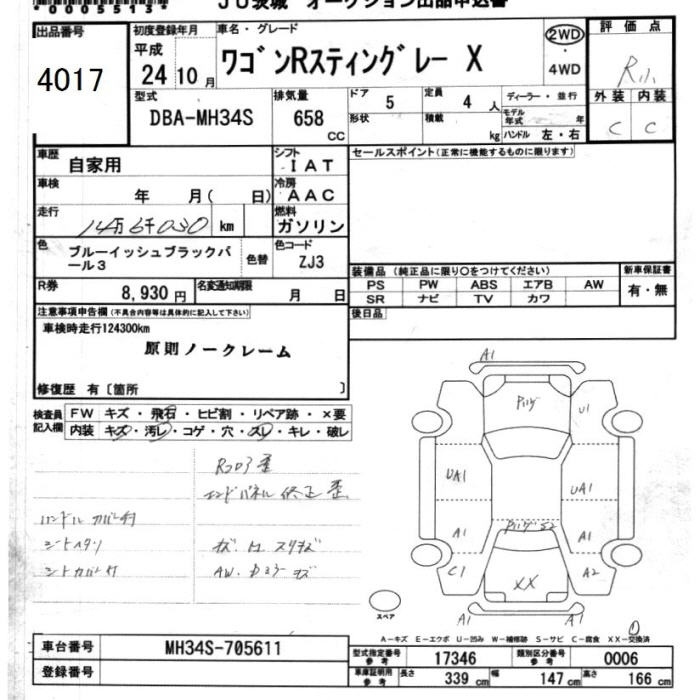 *0005513*
JU茨城 オークション出品申込書
出品番号
4017
初度登録年月
平成
24 10月
車名・グレード
ワゴンRスティングレー X
2WD
・
4WD
評価点
外装 内装
C C
型式
DBA-MH34S
排気量
658
CC
ドア
5
定員
4 人
形状
積載
kg
ディーラー・並行
モデル年式 年
ハンドル 左・右
車歴
自家用
シフト
IAT
セールスポイント(正常に機能するものに限ります)
車検
年 月( 日)
冷房
AAC
走行
km
燃料
ガソリン
色
ブルーイッシュブラックパール3
色替
色コード
ZJ3
R券
8,930 円
名変通知期限
月 日
装備品 (純正品に限り○をつけてください)
PS PW ABS エアB AW
SR ナビ TV カワ
新車保証書
有・無
後日品
注意事項申告欄(不具合内容等は具体的に記入して下さい)
車検時走行124300km
原則ノークレーム
修復歴 有〔箇所 〕
検査員記入欄
FW キズ・飛石・ヒビ割・リペア跡・×要
内装 キズ・汚レ・コゲ・穴・スレ・キレ・破レ
エンドパネル 修正 歪
A1
U1
UA1
UA1
A1
A1
C1
A2
XX
A1
A1
スペア
A-キズ E-エクボ U-凹み W-補修跡 S-サビ C-腐食 XX-交換済
車台番号
MH34S-705611
登録番号
型式指定番号
参考
17346
類別区分番号
参考
0006
車庫証明用
参考
長さ 339 cm
幅 147 cm
高さ 166 cm